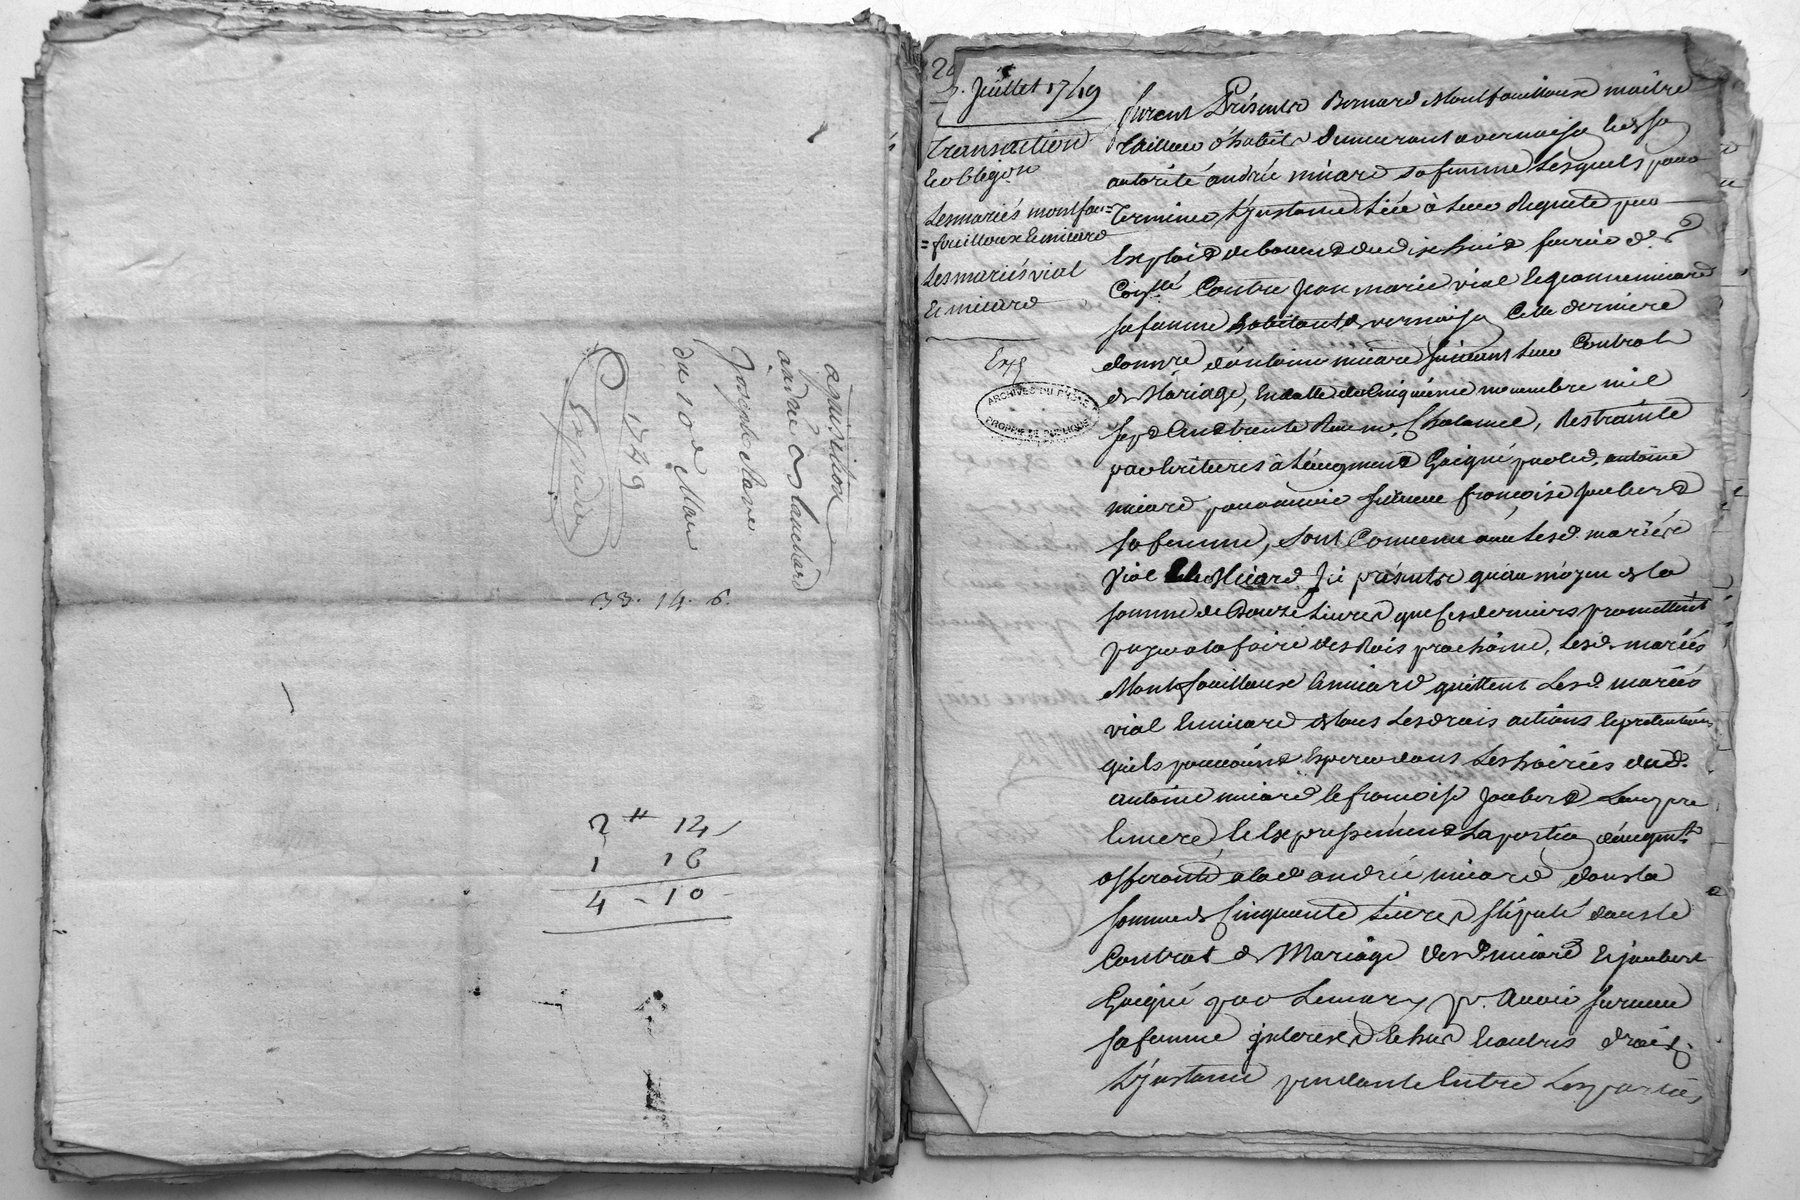 aquisition
andré Blanchard
Joseph
du 10e Mars
1749
Expedié
33. 14. 6.
2 # 14
1 16
4 - 10
2. Juillet 1749
transaction
et oblig.on
Les mariés montfou=
=fouilloux et miard
Les mariés vial
et miard
Exp
ARCHIVES DU RHÔNE
PROPRIÉTÉ PUBLIQUE
furent Présents Bernard Montfouilloux maitre
tailleur d'habits demeurant a vernaison et de sa
autorité andrée miard sa femme Lesquels pour
terminer L'jnstance Liée à Leur Requete par
Exploit de du dix huit fevrier d.er
Contre Jean marie vial et jeanne miard
sa femme habitants de vernaison Cette derniere
d'antoine miard suivant Leur Contrat
de Mariage, En datte du Cinquième novembre mil
sept Cent trente Reçu me Chalamel, Restrainte
par Ecritures à L'augment Gaigné par led. antoine
miard pour avoir survecu françoise Joubert
sa femme, sont Convenus avec Lesd. mariés
vial et Miard Ici présents qu'au moyen de la
somme de Douze Livres que ses derniers promettent
payer a la foire des Rois prochaine, Lesd. mariés
Montfouilloux et miard quittent Lesd. mariés
vial et miard de tous Les droits actions et pretentions
qu'ils pourroient Esperer dans Les hoiries dud.
antoine miard et françoise Joubert Leurs pere
et mere, et Expressement La portion d'augmt
afferante a lad. andrée miard dans la
somme de Cinquante Livres stipulé dans le
Contrat de Mariage desd. miard et joubert
Gaigné par Le mary pr. avoir survecu
sa femme jnterests et autres droits
L'jnstance pendante Entre Les parties